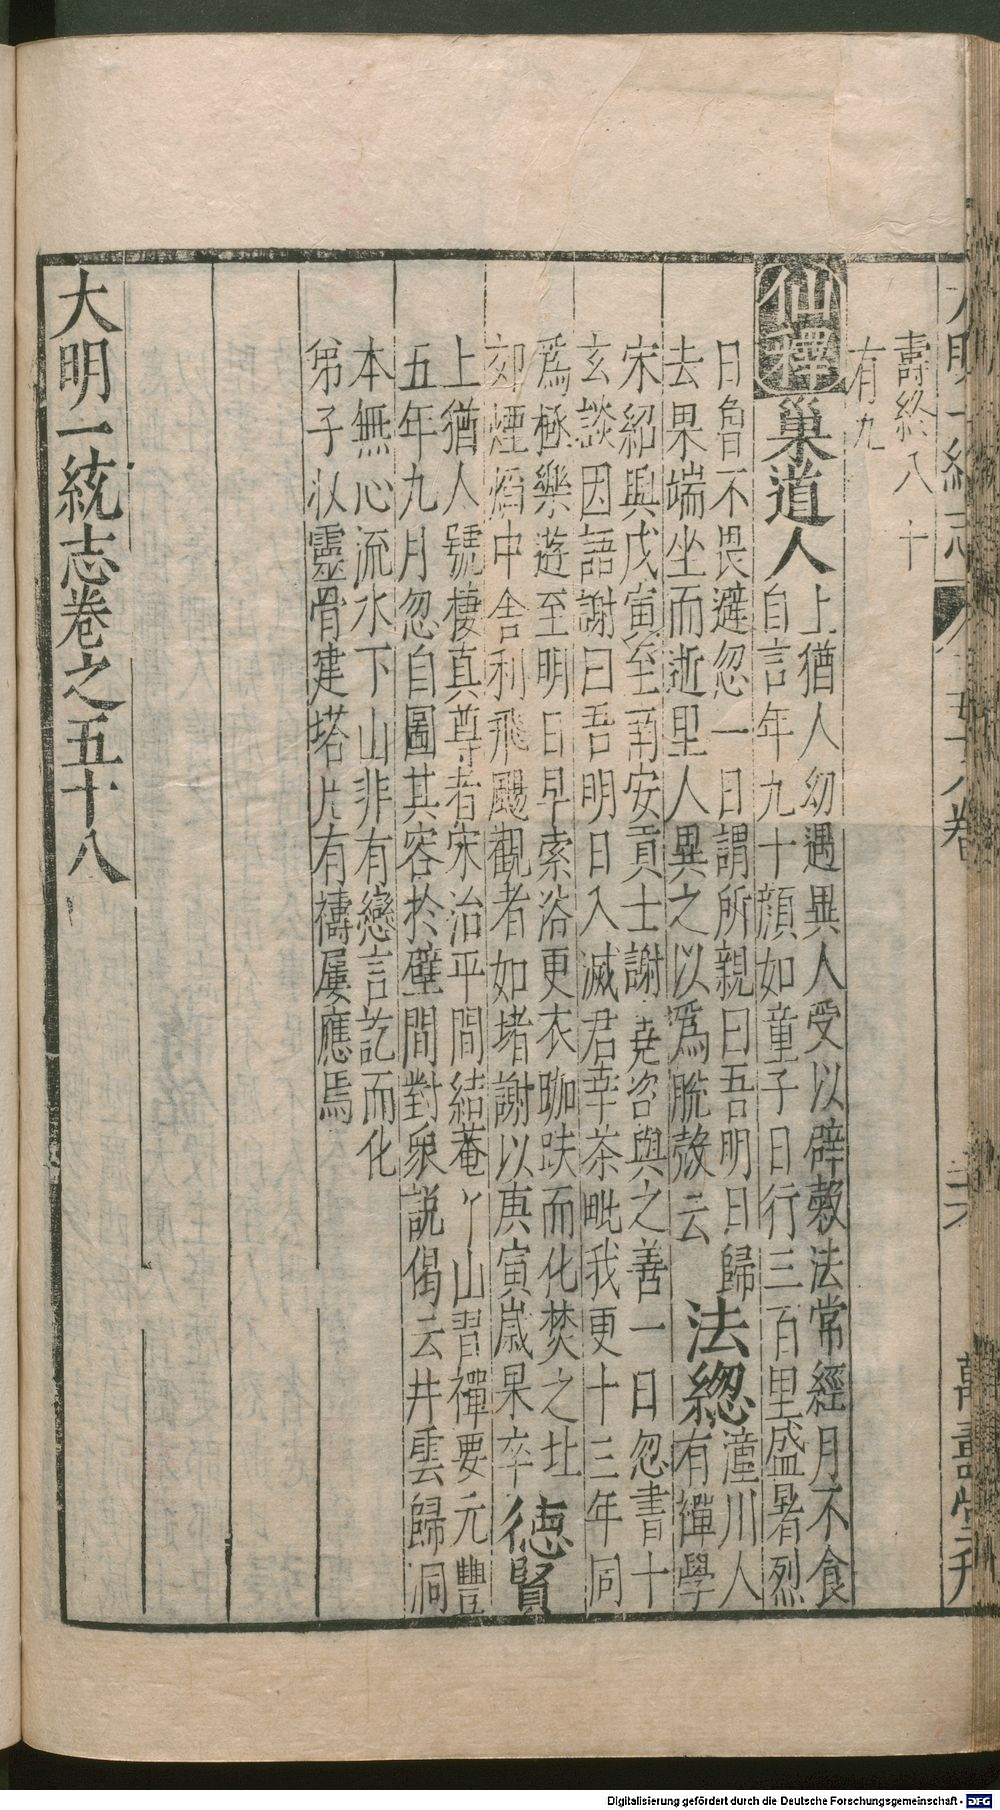 壽終八十
有九
仙釋
巢道人
上猶人幼遇異人受以辟穀法常經月不食
自言年九十顔如童子日行三百里盛暑烈
日曾不畏避忽一日謂所親曰吾明日歸
去果端坐而逝里人異之以爲脫殼云
法緫
潼川人
有禪學
宋紹興戊寅至南安貢士謝堯咨與之善一日忽書十
玄談因語謝曰吾明日入滅君幸茶毗我更十三年同
爲極樂遊至明日早索浴更衣跏趺而化焚之北
郊煙熖中舍利飛颺觀者如堵謝以庚寅歳果卒
德賢
上猶人號棲真尊者宋治平間結菴丫山習禪要元豐
五年九月忽自圖其容於壁間對衆説偈云井雲歸洞
本無心流水下山非有戀言訖而化
弟子収靈骨建塔片有禱屢應焉
大明一統志卷之五十八
Digitalisierung gefördert durch die Deutsche Forschungsgemeinschaft - DFG